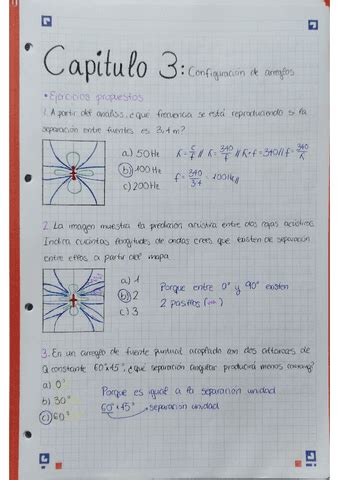 Capitulo 3: Configuración de arreglos
• Ejercicios propuestos
1. A partir del analisis, ¿que frecuencia se está reproduciendo si la
separación entre fuentes es 3.4 m?
a) 50 Hz
b) 100 Hz
c) 200 Hz
λ = c/f // λ = 340/f // λ·f = 340 // f = 340/λ
f = 340/3.4 = 100Hz //
2. La imagen muestra la predicción acústica entre dos cajas acústicas.
Indica cuantas longitudes de ondas crees que existen de separación
entre ellos a partir del mapa.
a) 1
b) 2
c) 3
Porque entre 0° y 90° existen
2 positivos
3. En un arreglo de fuente puntual acoplado con dos altavoces de
Q constante 60°x45°, ¿qué separación angular producirá menos
a) 0°
b) 30°
c) 60°
Porque es igual a la separación unidad
60° x 45° separación unidad